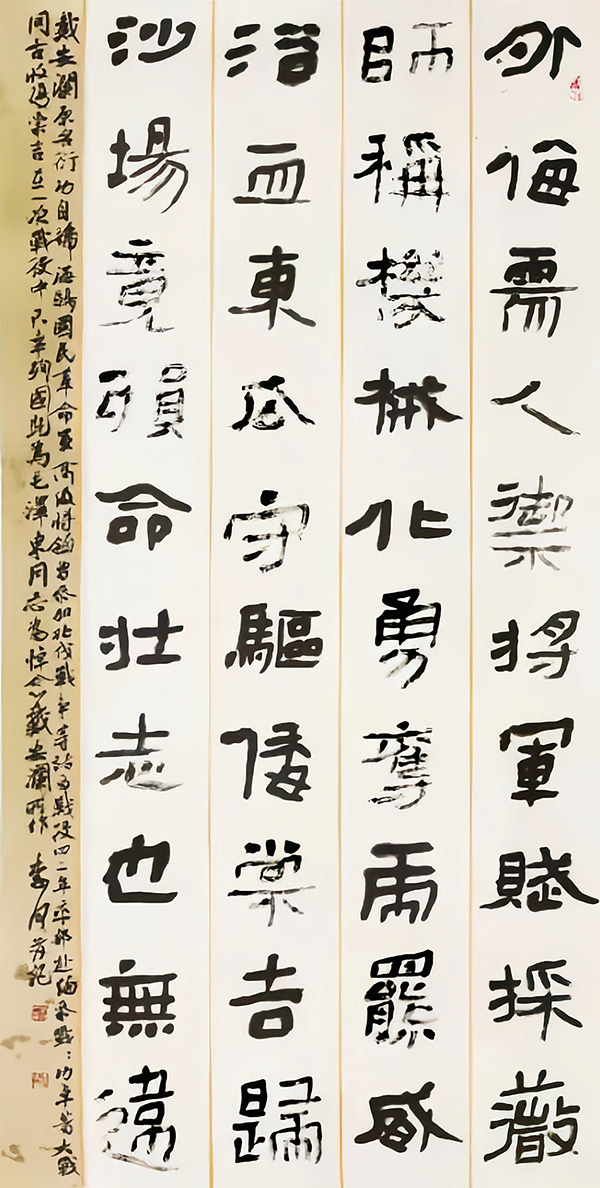 外侮需人禦將軍賦採薇
師稱機械化勇奪虎羆威
浴血東瓜守驅倭棠吉歸
沙場竟殞命壯志也無違
戴安瀾原名衍功自號海鷗國民革命軍高級將領曾參加北伐戰爭等諸多戰役四二年率部赴緬參戰大戰
同古收復棠吉在一次戰役中不幸殉國此為毛澤東同志為悼念戴安瀾所作 李月記